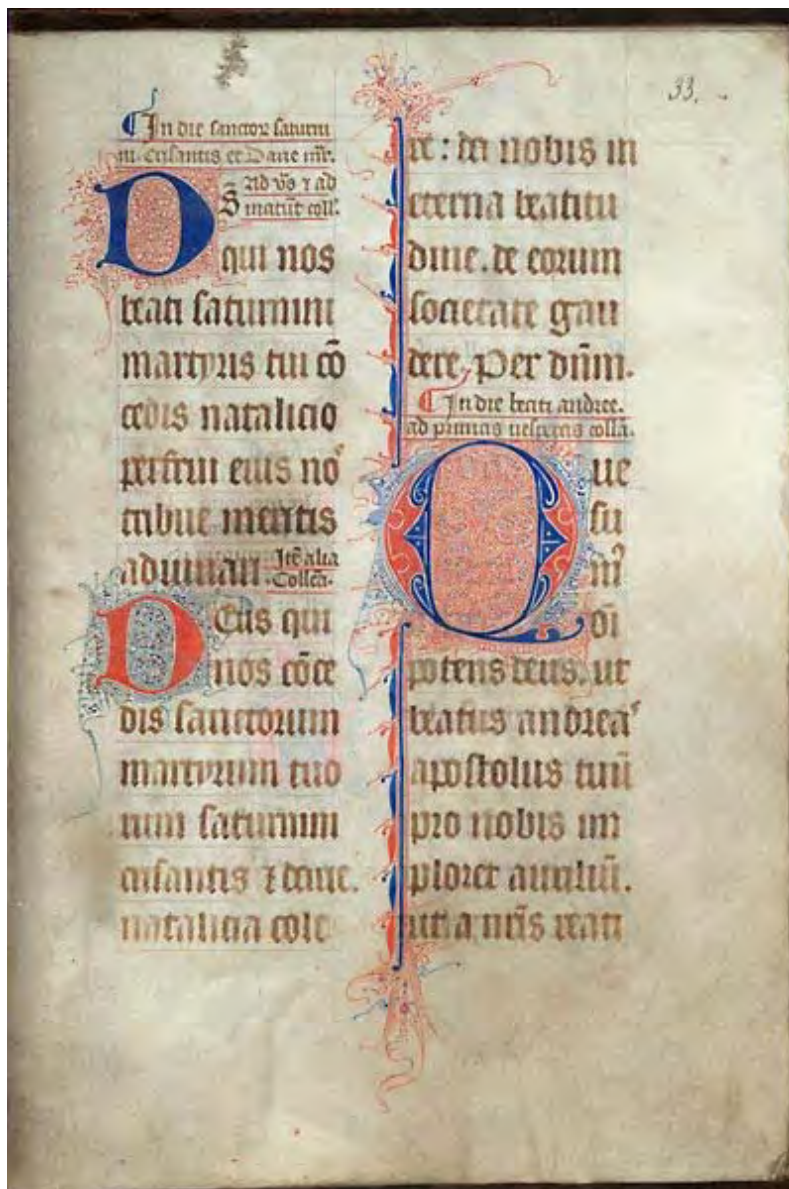 33.
In die sanctoꝝ saturni
ni. crisantis et Darie mr̄.
Ad vs̄ ⁊ ad
S̄ matut̄ coll.
D qui nos
beati saturnini
martyris tui cō
cedis natalicio
perfrui eius nos
tribue meritis
adiuuari. Itē alia
Collcā.
Deus qui
nos cōce
dis sanctorum
martyrum tuo
rum saturnini
crisantis ⁊ darie.
natalicia cole
re: da nobis in
eterna beatitu
dine. de eorum
societate gau
dere. Per dn̄m.
In die beati andree.
ad primas uesperas collā.
Que
su
m⁹
oī
potens deus. ut
beatus andreas
apostolus tuū
pro nobis im
ploret auxiliū.
ut a nr̄is reati